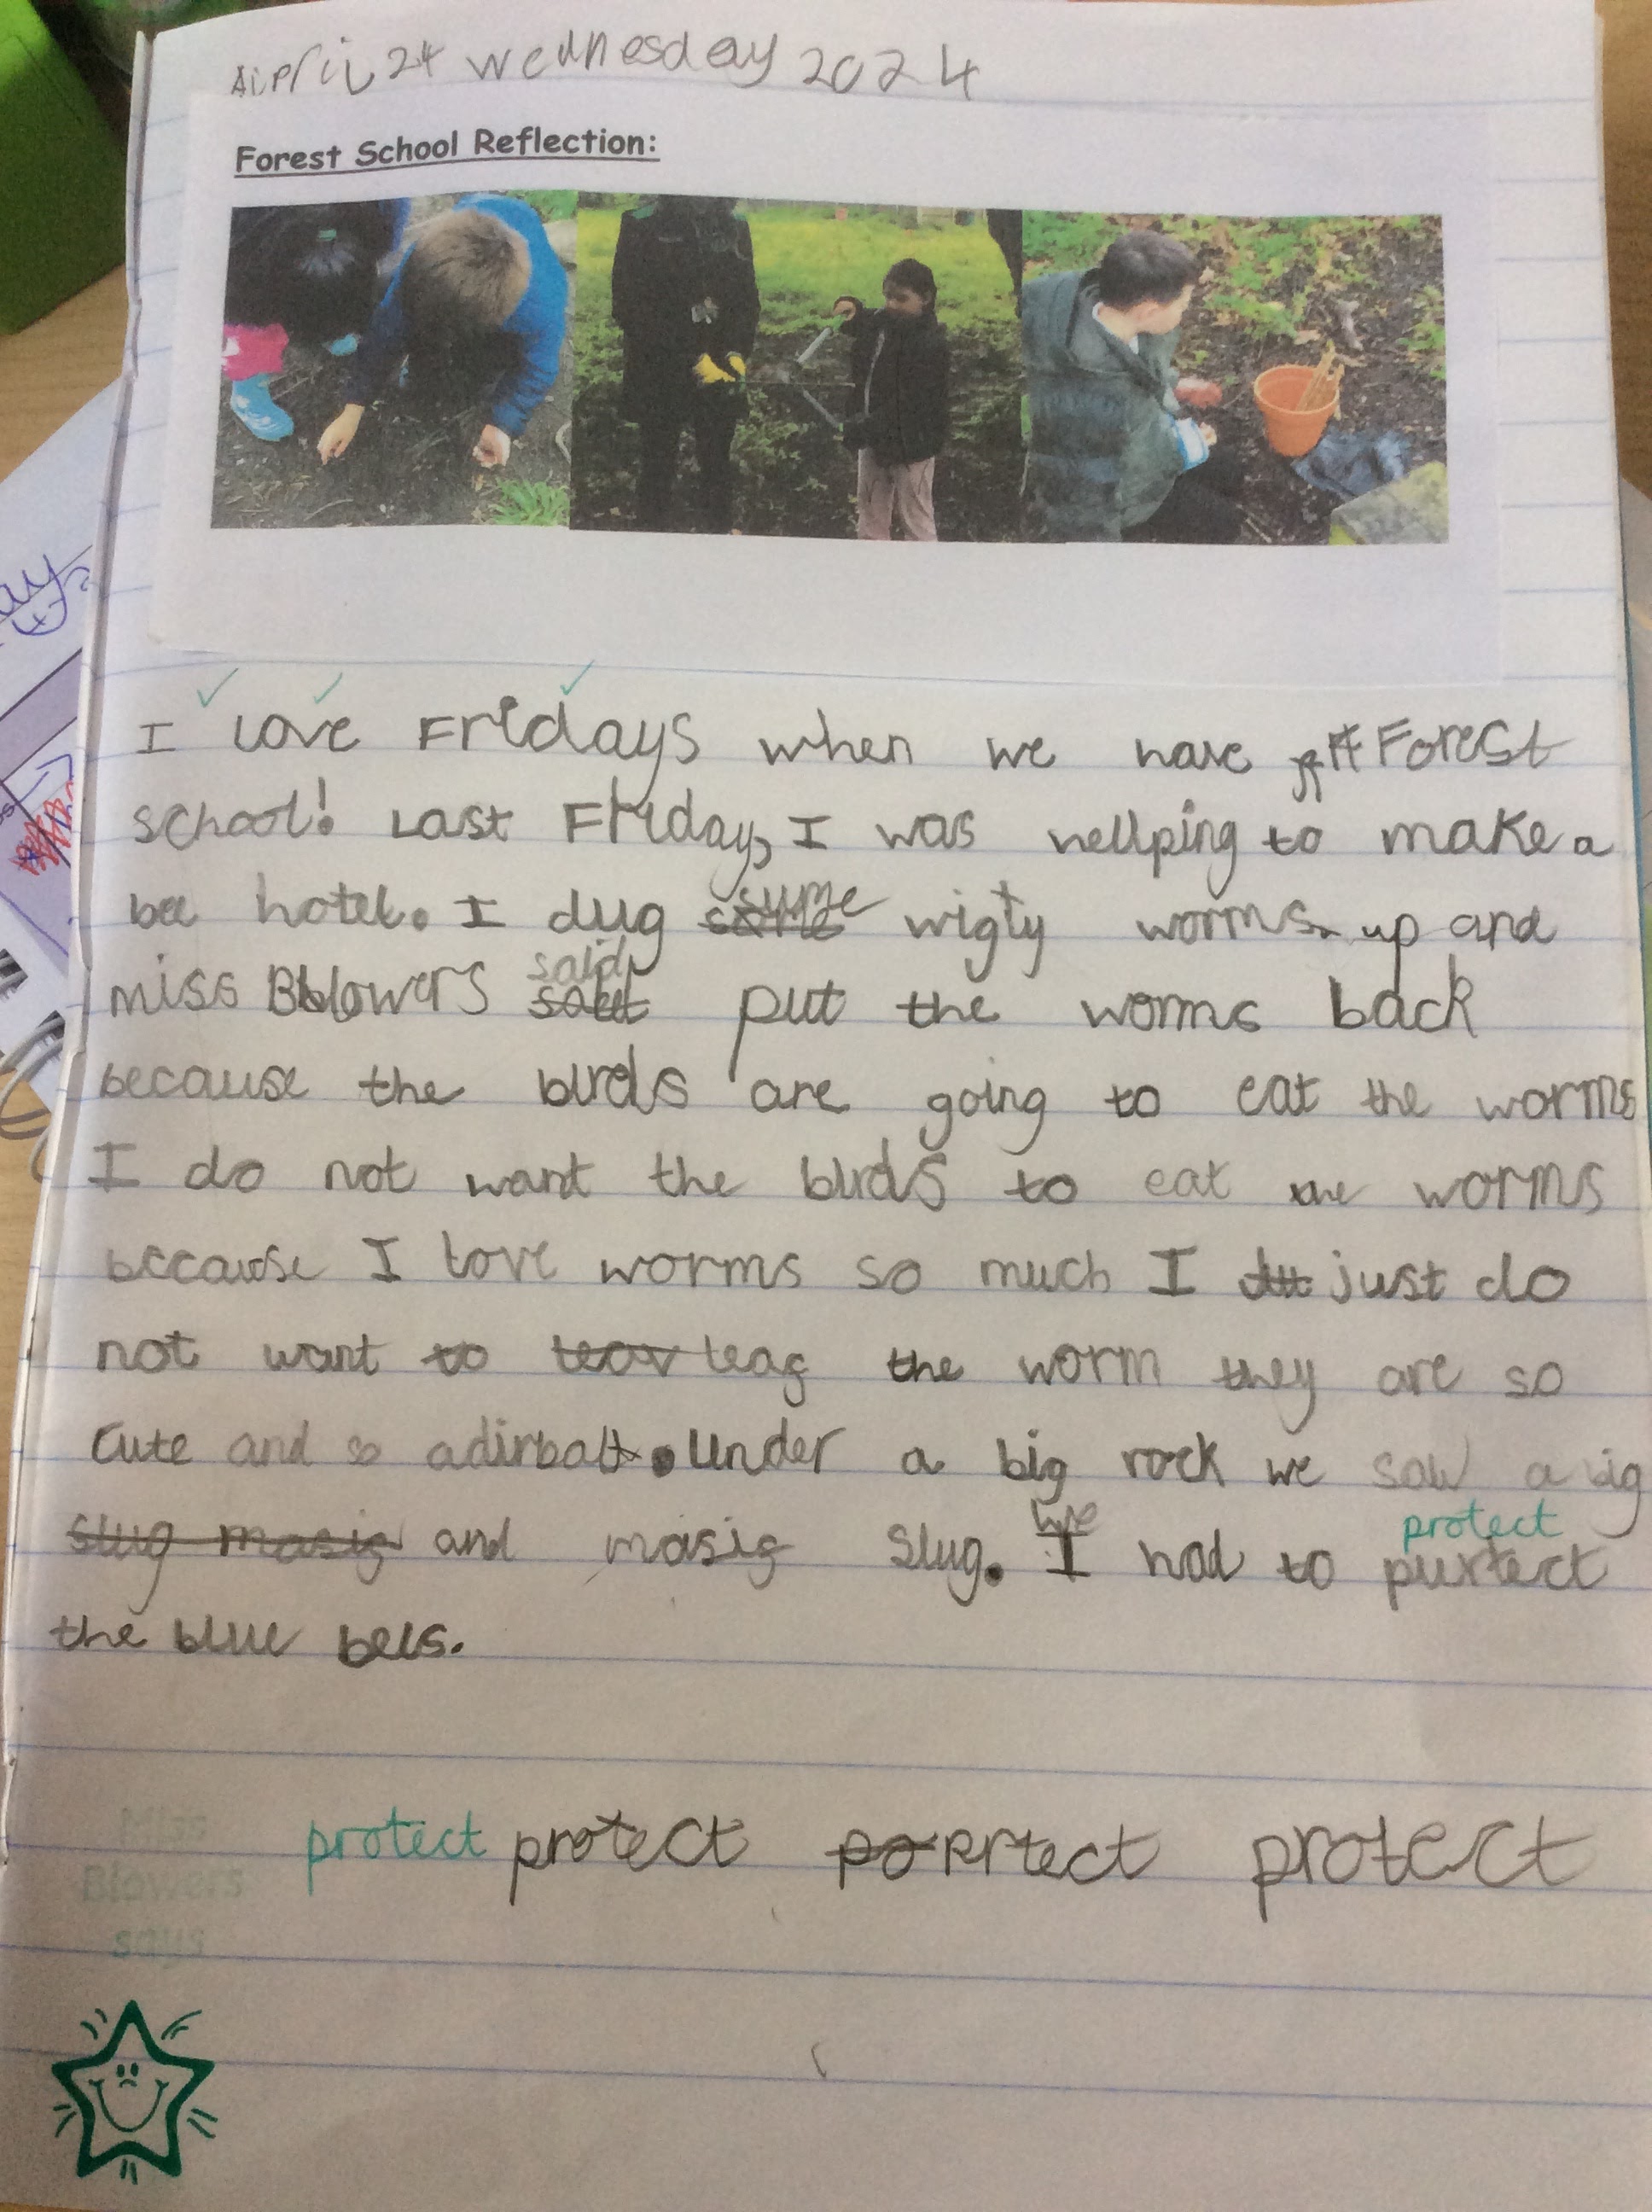 April 24 Wednesday 2024
Forest School Reflection:
I love Fridays when we have Forest
school! Last Friday, I was hellping to make a
bee hotel. I dug sume wigly worms up and
miss Blowers said put the worms back
because the birds are going to eat the worms
I do not want the birds to eat the worms
because I love worms so much I just do
not want to leag the worm they are so
cute and so adirball. Under a big rock we saw a big
slug masig and masig slug. we had to
protect
purtect
the blue bels.
protect protect po prtect protect
Miss
Blowers
says